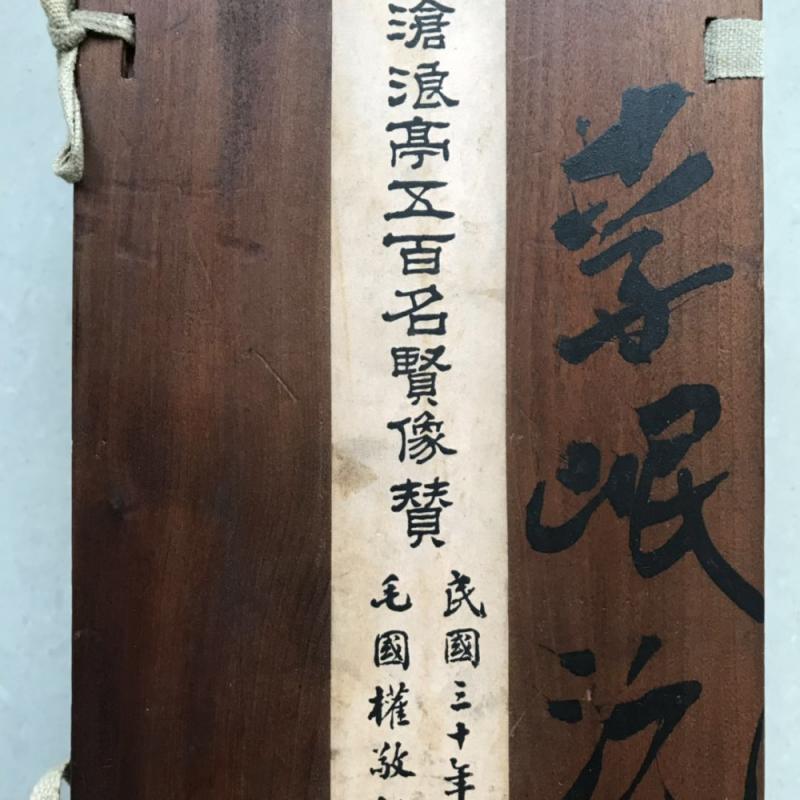 岷
滄浪亭五百名賢像贊
民國三十年
毛國權敬